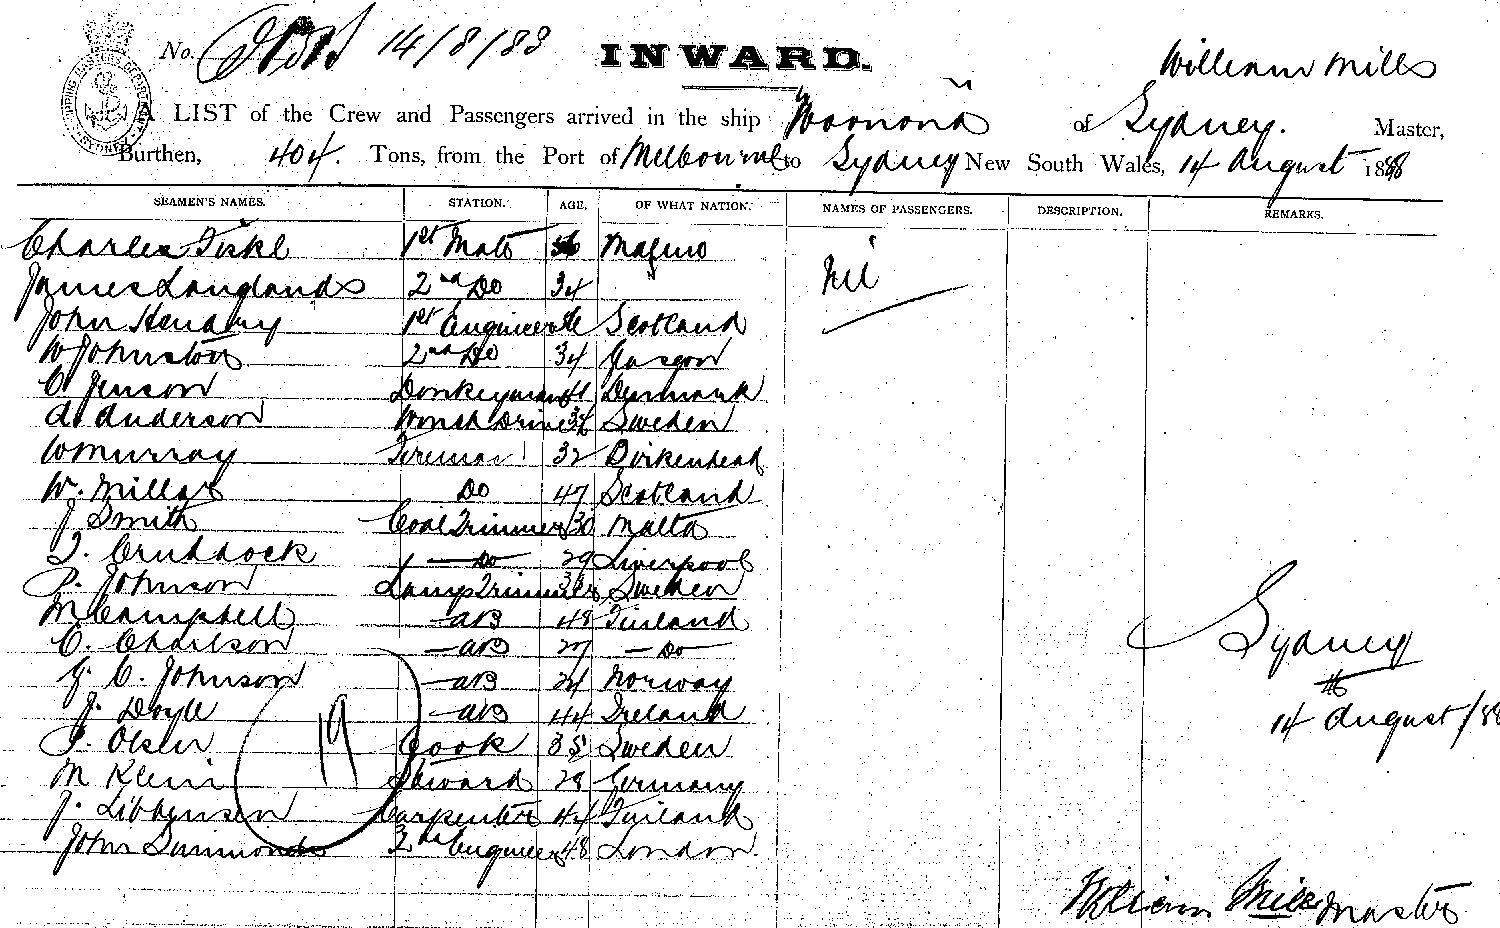 No. 14/8/88 INWARD.
William Mills
A LIST of the Crew and Passengers arrived in the ship Woonona of Sydney. Master,
Burthen, 404. Tons, from the Port of Melbourne to Sydney New South Wales, 14 August 1888
SEAMEN'S NAMES. STATION. AGE. OF WHAT NATION. NAMES OF PASSENGERS. DESCRIPTION. REMARKS.
Charles 1st Mate
nil
James Langlands 2nd Do 34
John Hendry 1st Engineer Scotland
W Johnston 2nd Do 34 Glasgow
C. Jenson Donkeyman 41 Denmark
A. Anderson Winch Driver 34 Sweden
W Murray Fireman 32 Birkenhead
W. Millar Do 47 Scotland
J Smith Coal Trimmer 30 Malta
T. Cruddock — Do — 29 Liverpool
P. Johnson Lamp Trimmer Sweden
M Campbell — AB 48 Finland
C. Charlson — AB 27 — Do —
Sydney
G. C. Johnson — AB 24 Norway
J. Doyle — AB 44 Ireland
14 August/88
P. Olsen Cook 35 Sweden
19
M Klein Steward 28 Germany
J. Carpenter 44 Finland
John Simmonds Engineer 48 London.
William Mills Master